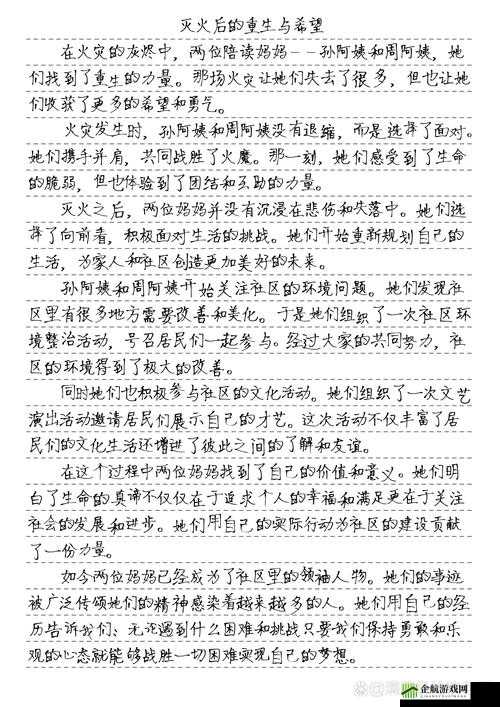 灭火后的重生与希望
在火灾的灰烬中，两位陪读妈妈--孙阿姨和周阿姨，她
们找到了重生的力量。那场火灾让她们失去了很多，但也让她
们收获了更多的希望和勇气。
火灾发生时，孙阿姨和周阿姨没有退缩，而是选择了面对。
她们携手并肩，共同战胜了火魔。那一刻，她们感受到了生命
的脆弱，但也体验到了团结和互助的力量。
灭火之后，两位妈妈并没有沉浸在悲伤和失落中。她们选
择了向前看，积极面对生活的挑战。她们开始重新规划自己的
生活，为家人和社区创造更加美好的未来。
孙阿姨和周阿姨开始关注社区的环境问题。她们发现社
区里有很多地方需要改善和美化。于是她们组织了一次社区环
境整治活动，号召居民们一起参与。经过大家的共同努力，社
区的环境得到了极大的改善。
同时她们也积极参与社区的文化活动。她们组织了一次文艺
演出活动邀请居民们展示自己的才艺。这次活动不仅丰富了居
民们的文化生活还增进了彼此之间的了解和友谊。
在这个过程中两位妈妈找到了自己的价值和意义。她们明
白了生命的真谛不仅仅在于追求个人的幸福和满足更在于关注
社会的发展和进步。她们用自己的实际行动为社区的建设贡献
了一份力量。
如今两位妈妈已经成为了社区里的领袖人物。她们的事迹
被广泛传颂她们的精神感染着越来越多的人。她们用自己的经
历告诉我们：无论遇到什么困难和挑战只要我们保持勇敢和乐
观的心态就能够战胜一切困难实现自己的梦想。
企航游戏网